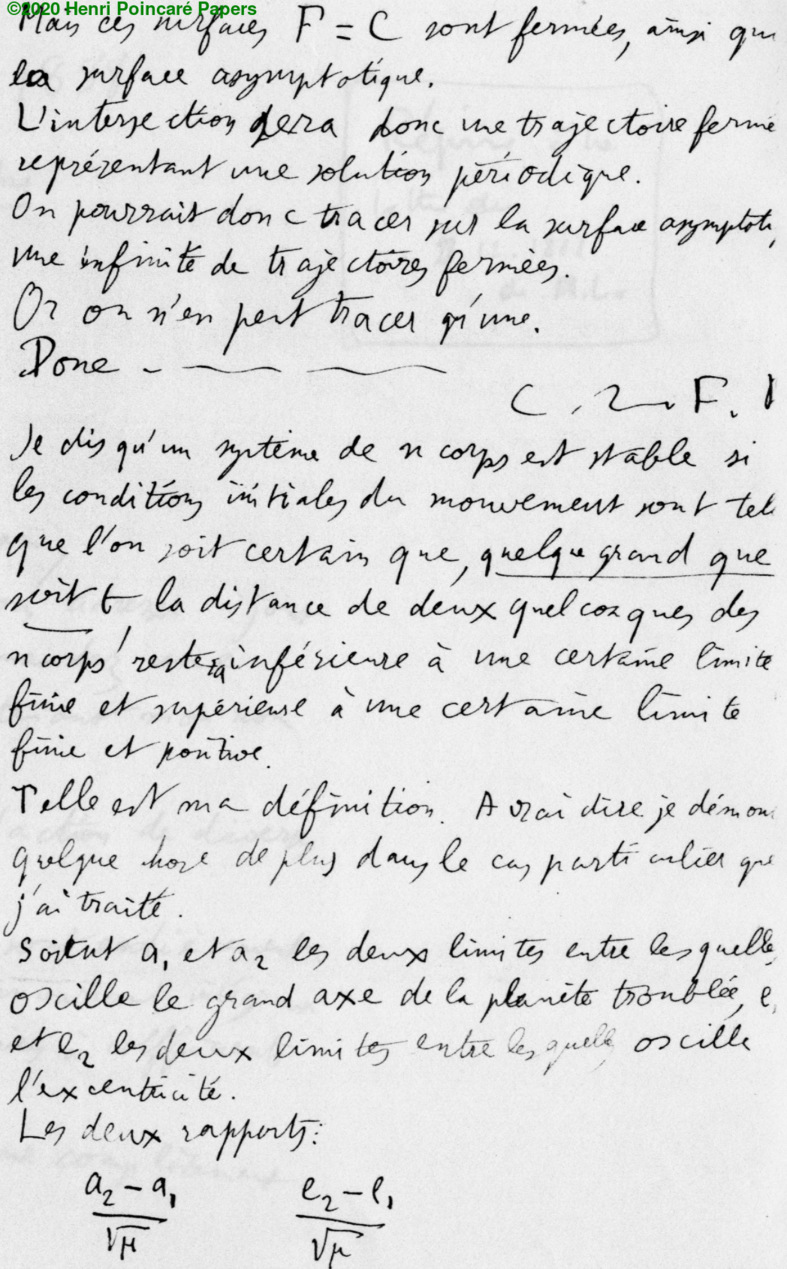 ©2020 Henri Poincaré Papers
Mais ces surfaces F = C sont fermées, ainsi que
la surface asymptotique.
L'intersection sera donc une trajectoire fermée
représentant une solution périodique.
On pourrait donc tracer sur la surface asymptoti
une infinité de trajectoires fermées.
Or on n'en peut tracer qu'une.
Donc - — —
C. Q. F. D
Je dis qu'un système de n corps est stable si
les conditions initiales du mouvement sont tell
que l'on soit certain que, quelque grand que
soit t la distance de deux quelconques des
n corps restera inférieure à une certaine limite
finie et supérieure à une certaine limite
finie et positive.
Telle est ma définition. A vrai dire je démon
quelque chose de plus dans le cas particulier que
j'ai traité.
Soient a₁ et a₂ les deux limites entre lesquelles
oscille le grand axe de la planète troublée, e₁
et e₂ les deux limites entre lesquelles oscille
l'excentricité.
Les deux rapports:
(a₂ - a₁)/√μ (e₂ - e₁)/√μ